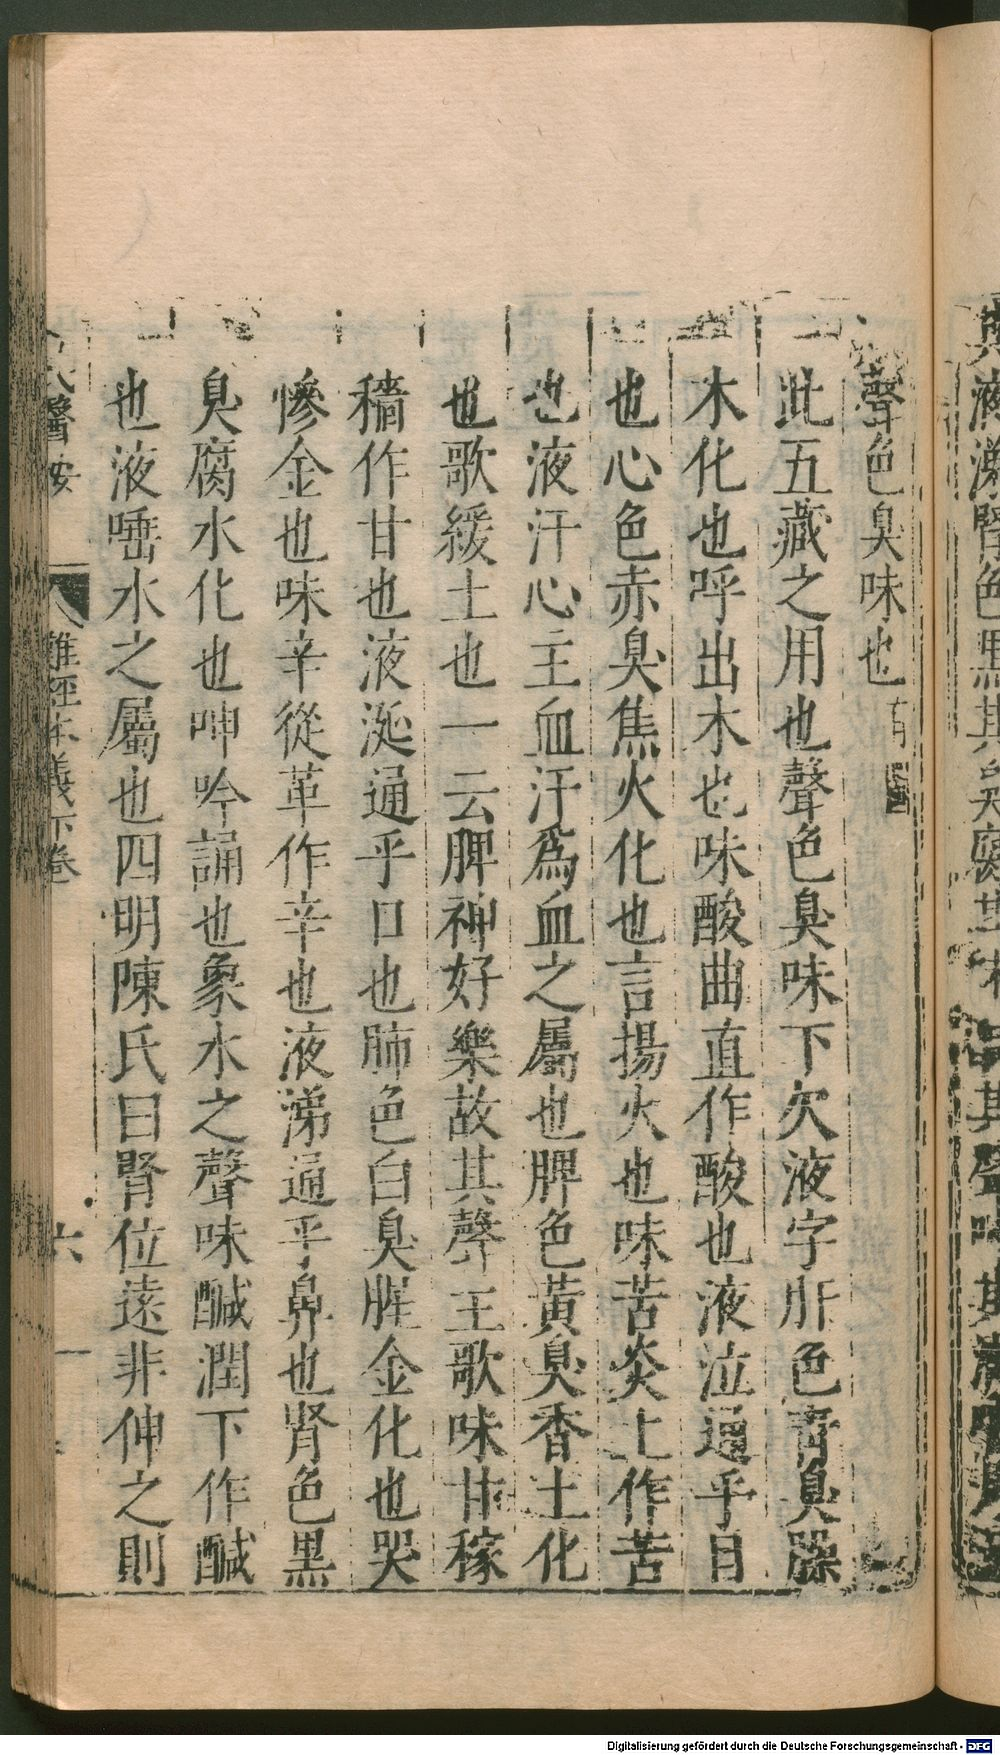 聲色臭味也
此五藏之用也聲色臭味下欠液字肝色青臭臊
木化也呼出木也味酸曲直作酸也液泣通乎目
也心色赤臭焦火化也言揚火也味苦炎上作苦
也液汗心主血汗為血之屬也脾色黃臭香土化
也歌緩土也一云脾神好樂故其聲主歌味甘稼
穡作甘也液涎通乎口也肺色白臭腥金化也哭
慘金也味辛從革作辛也液涕通乎鼻也腎色黑
臭腐水化也呻吟誦也象水之聲味鹹潤下作鹹
也液唾水之屬也四明陳氏曰腎位遠非伸之則
氏醫按 難經本義下卷 六
Digitalisierung gefördert durch die Deutsche Forschungsgemeinschaft - DFG